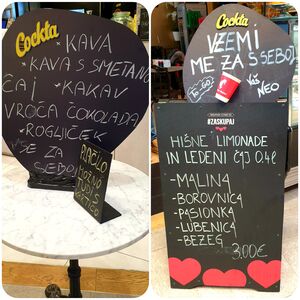 Cockta
• KAVA
• KAVA S SMETANO
ČAJ • KAKAV
VROČA ČOKOLADA
• ROGLJIČEK
VSE ZA
SEBOJ
PLAČILO
MOŽNO
TUDI S
KARTICO
Cockta
VZEMI
ME ZA S SEBOJ
TO-GO
Vaš
NEO
#ZASKUPAJ
HIŠNE LIMONADE
IN LEDENI ČAJ 0.4L
-MALINA
-BOROVNICA
-PASIJONKA
-LUBENICA
-BEZEG
3,00€